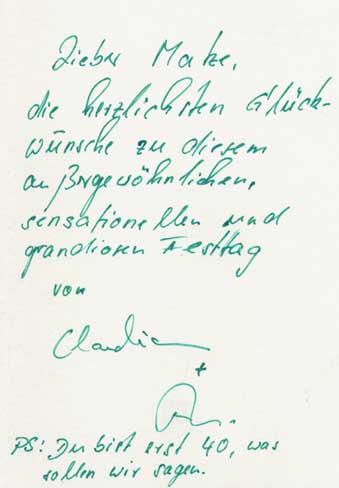 Lieber Matze,
die herzlichsten Glück-
wünsche zu diesem
außrgewöhnlichen,
sensationellen und
grandiosen Festtag
von
Claudia
+
PS: Du bist erst 40, was
sollen wir sagen.